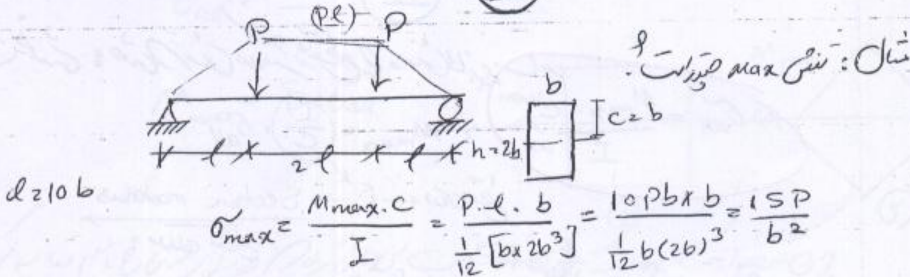 (Pl)
P P
مثال: تنش max چقدر است؟
b
c = b
h = 2b
l 2l l
l = 10 b
σmax = Mmax.c / I = P.l.b / 1/12 [b x 2b³] = 10Pb x b / 1/12 b(2b)³ = 15P / b²